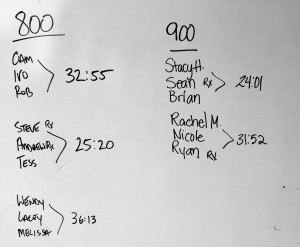 800
Cam
Ivo
Rob
32:55
Steve Rx
Andrew Rx
Tess
25:20
Wendy
Lacey
Melissa
36:13
900
Stacy H.
Sean Rx
Brian
24:01
Rachel M.
Nicole
Ryan Rx
31:52